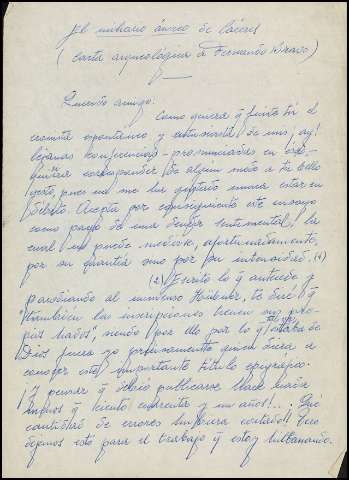 El miliario áureo de Cáceres
(Carta arqueológica a Fernando Bravo)
Querido amigo:
Como quiera q fuiste tú el
cronista espontáneo y entusiasta de unas, ay!
lejanas conferencias - pronunciadas en
quisiera corresponder de algún modo a tu bello
gesto, pues no me ha gustado nunca estar en
débito. Acepta por consiguiente este ensayo
como pago de una deuda sentimental, la
cual no puede medirse, afortunadamente,
por su cuantía sino por su intensidad. (1)
(2) Escrito lo q antecede y
parodiando al inmenso Hübner, te diré q
"también las inscripciones tienen sus pro-
pios hados", siendo por ello por lo q estaba de
Dios fuera yo precisamente quien diera a
conocer este importante título epigráfico.
¡Y pensar q debió publicarse hace nada
menos q ciento cuarenta y un años!... Qué
cantidad de errores hubiera evitado!! Pero
dejemos esto para el trabajo q estoy hilvanando.